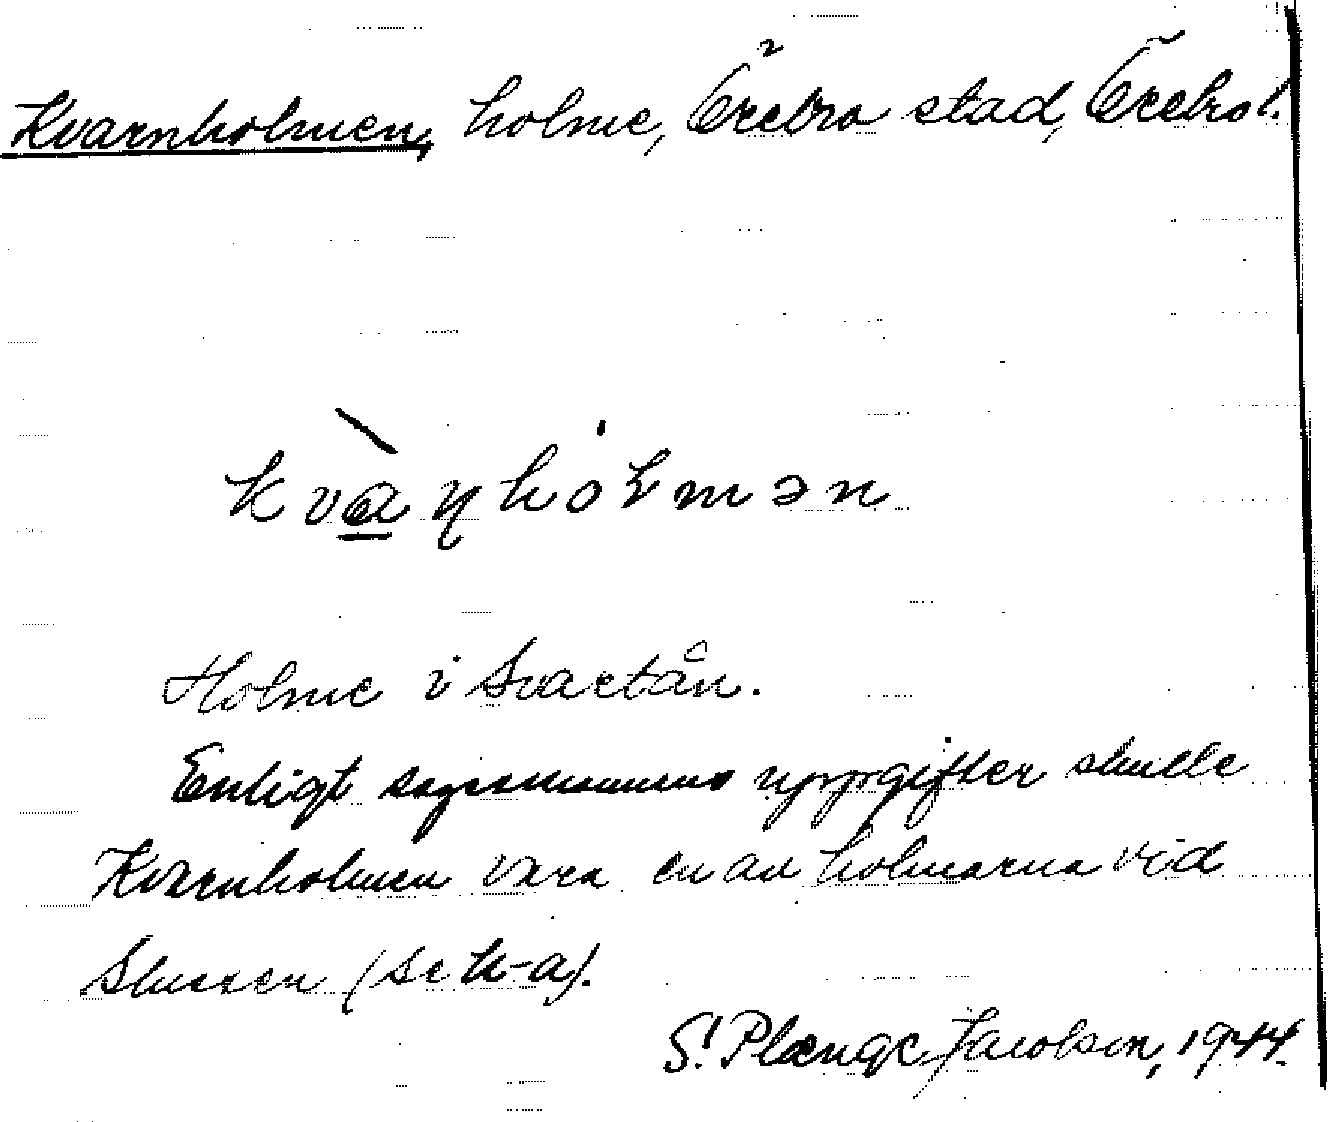 Kvarnholmen, holme, Örebro stad, Örebro l.
kvàɳhólmən
Holme i Svartån.
Enligt sagesmannens uppgifter skulle
Kvarnholmen vara en av holmarna vid
Slussen (se k-a).
S. Plænge Jacobson, 1944.